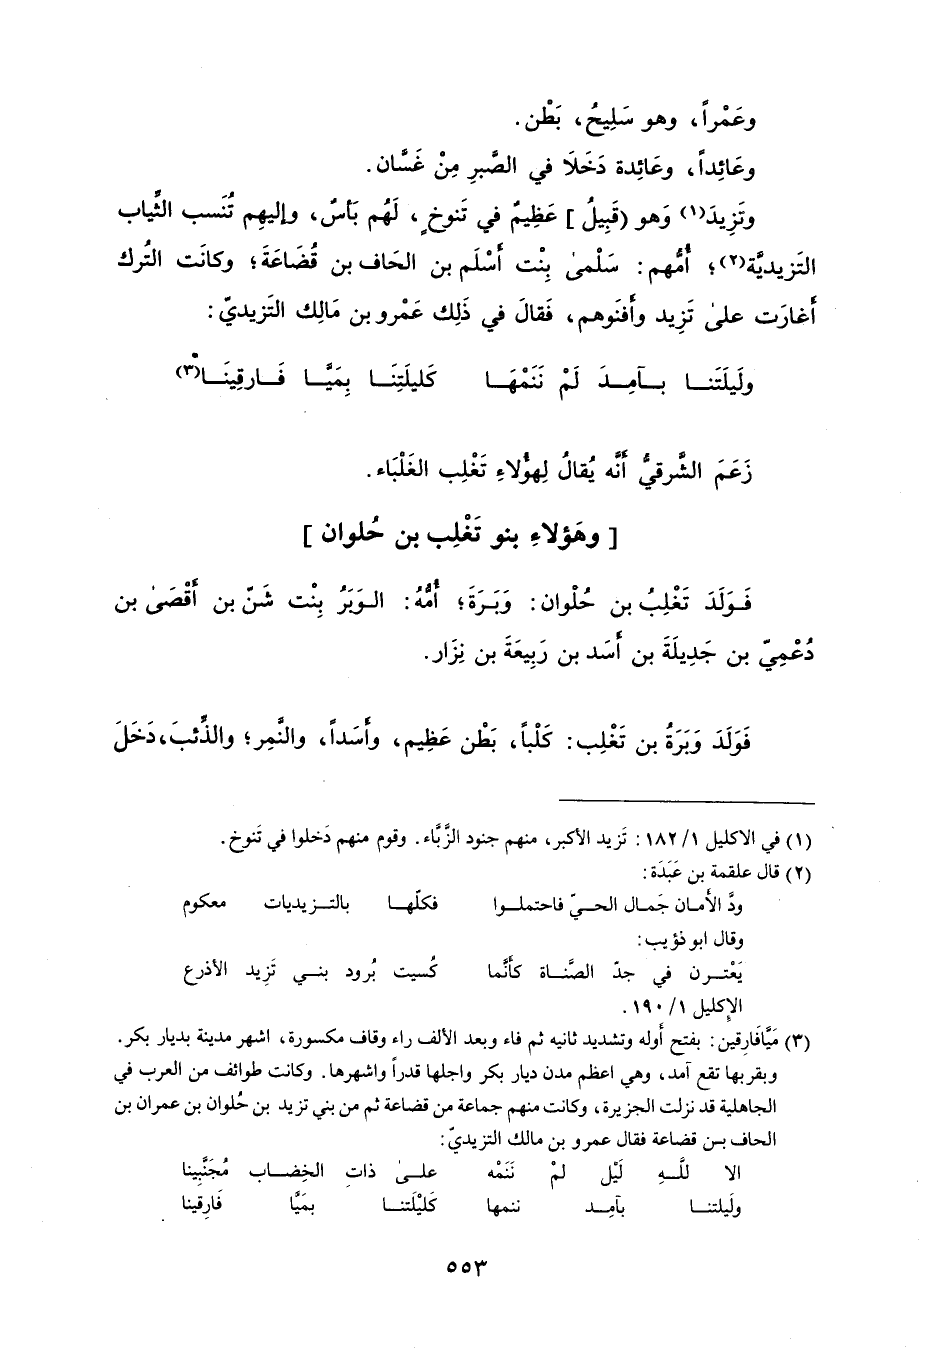 وعَمْراً، وهو سَلِيحُ، بَطْن.
وعَائِداً، وعَائِدة دَخَلَا في الصَّبرِ مِنْ غَسَّان.
وتَزِيدَ(١) وَهو (قَبِيلُ] عَظِيمُ في تَنوخٍ، لَهُم بَاسٌ، وإليهِم تُنَسب الثِّياب
التَزيديَّة(٢)؛ أُمُّهم: سَلْمىٰ بِنْت أَسْلَم بن الحَاف بن قُضَاعَةَ؛ وكانَت التُرك
أَغارَت علىٰ تَزِيد وأَفنَوهم، فَقالَ في ذَلِك عَمْرو بن مَالِك التَزيديّ:
ولَيلَتَنا بآمِدَ لَمْ نَنَمْهَا كَليلَتِنَا بِمَيَّا فَارقِينَا(٣)
زَعَمَ الشَّرقيُّ أَنَّه يُقالُ لِهؤُلاءِ تَغْلِب الغَلْبَاء.
[ وهَؤلاءِ بنو تَغْلِب بن حُلوان ]
فَولَدَ تَغْلِبُ بن حُلْوان: وَبَرَةَ؛ أُمُّهُ: الوَبَرُ بِنْت شَنّ بن أَقْصَىٰ بن
دُعْمِيّ بن جَدِيلَةَ بن أَسَد بن رَبِيعَةَ بن نِزَار.
فَوَلَدَ وَبَرَةُ بن تَغْلِب: كَلْباً، بَطْن عَظِيم، وأَسَداً، والنَّمِر؛ والذِّئبَ، دَخَلَ
(١) في الاكليل ١٨٢/١: تَزيد الأكبر، منهم جنود الزَّبَّاء. وقوم منهم دَخلوا في تَنوخ.
(٢) قال علقمة بن عَبَدَة:
ودَّ الأمان جَمال الحيّ فاحتملوا فكلّها بالتزيديات معكوم
وقال ابو ذؤيب:
يَعْترن في جدّ الصَّناة كأَنَّما كُسيت بُرود بني تَزيد الأذرع
الإكليل ١٩٠/١.
(٣) مَيَّافَارِقين: بفتح أوله وتشديد ثانيه ثم فاء وبعد الألف راء وقاف مكسورة، اشهر مدينة بديار بكر.
وبقربها تقع آمد، وهي اعظم مدن ديار بكر واجلها قدراً واشهرها. وكانت طوائف من العرب في
الجاهلية قد نزلت الجزيرة، وكانت منهم جماعة من قضاعة ثم من بني تزيد بن حُلوان بن عمران بن
الحاف بن قضاعة فقال عمرو بن مالك التزيديّ:
الا للَّهِ لَيْل لمْ نَنَمْه علىٰ ذاتِ الخِضاب مُجَنَّبِينا
ولَيلتنا بآمِد ننمها كَلَيْلَتنا بمَيَّا فَارِقينا
٥٥٣